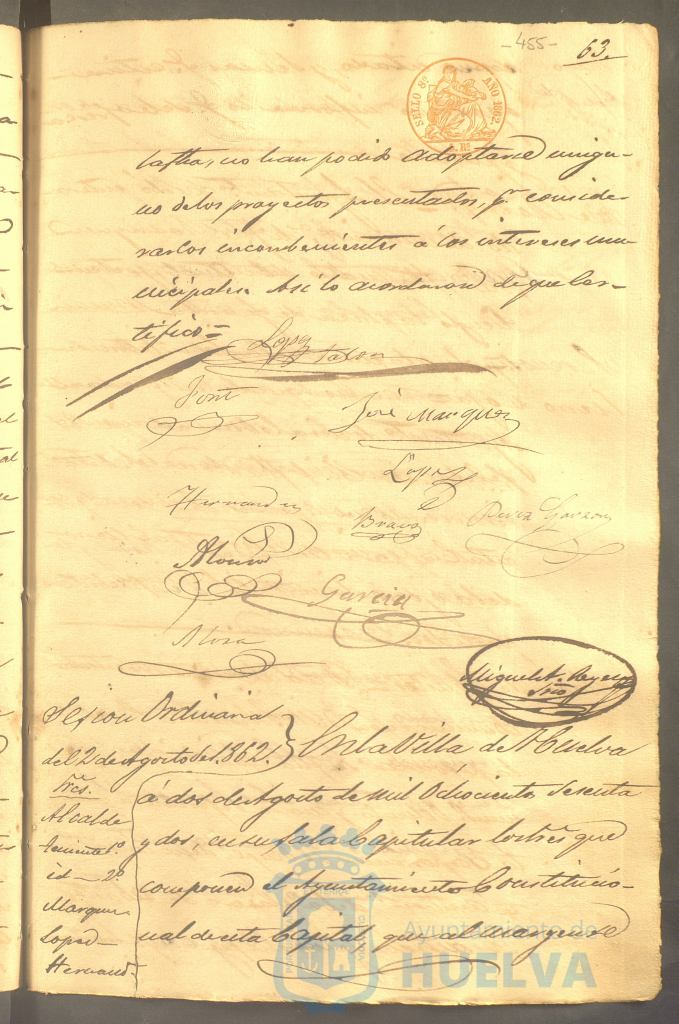 -455-
63.
SELLO 8º AÑO 1862.
no han podido adoptarse ningu-
no de los proyectos presentados, pr conside-
rarlos incombenientes á los intereses mu-
nicipales. Así lo acordaron de que Cer-
tifico=
Lopez
Font
José Marquez
Lopez
Hernandez
Bravo
Perez Garzon
Alonso
Garcia
Miguel A. Reyes
Srio
Sesion Ordinaria
del 2 de Agosto del .862.
En la Villa de Huelva
á dos de Agosto de mil Ochocientos Sesenta
y dos, en su Sala Capitular los Sres que
componen el Ayuntamiento Constitucio-
nal de esta Capital, que al margen se
Sres.
Alcalde
Teniente 1º
id— 2º
Marquez
Lopez—
Hernand-
Ayuntamiento de
HUELVA